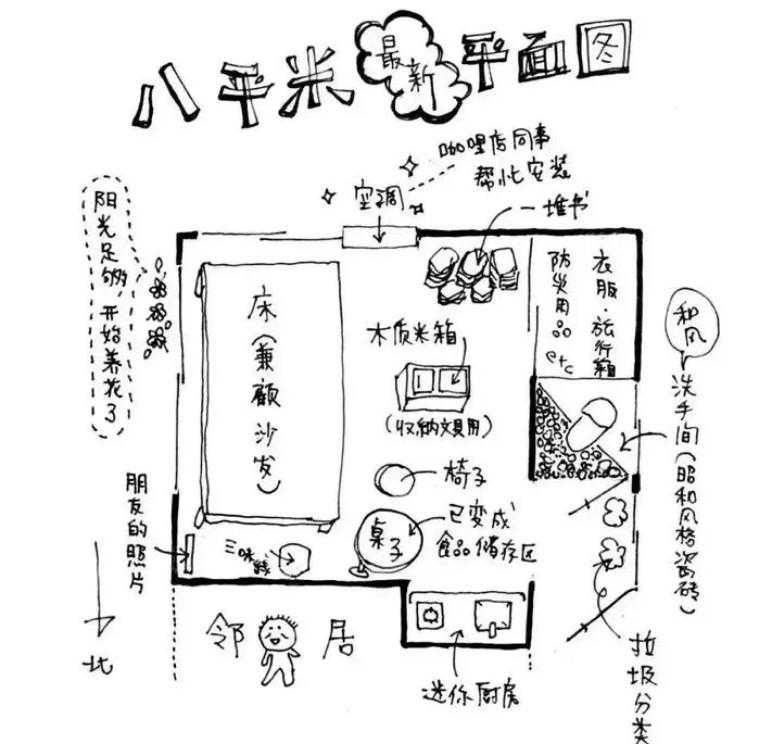 八平米最新平面图
咖哩店同事
帮忙安装
空调
一堆书
阳光足够,开始养花了
床(兼顾沙发)
木质米箱
(收纳文具用)
衣服·旅行箱
防灾用品
etc
和风
洗手间(昭和风格瓷砖)
椅子
桌子
已变成
食品储存区
三味线
朋友的照片
北
邻居
迷你厨房
垃圾分类